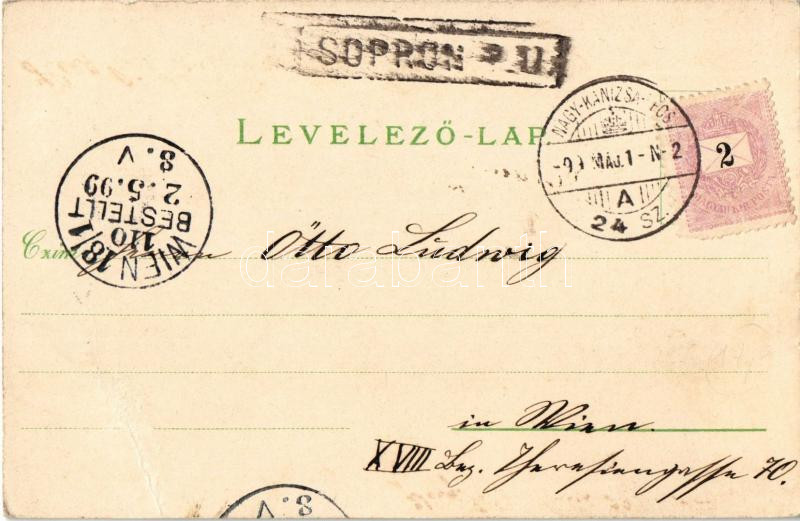 SOPRON P.U
LEVELEZŐ-LAP
NAGY-KANIZSA-
-99 MÁJ.1-N-2
A
24 SZ.
2
MAGYAR KIR. POSTA
WIEN 18/1
110
BESTELLT
2.5.99
8.V
Czím: Herrn Otto Ludwig
darabanth
in Wien.
XVIII Bez. Theresiengasse 70.
8.V